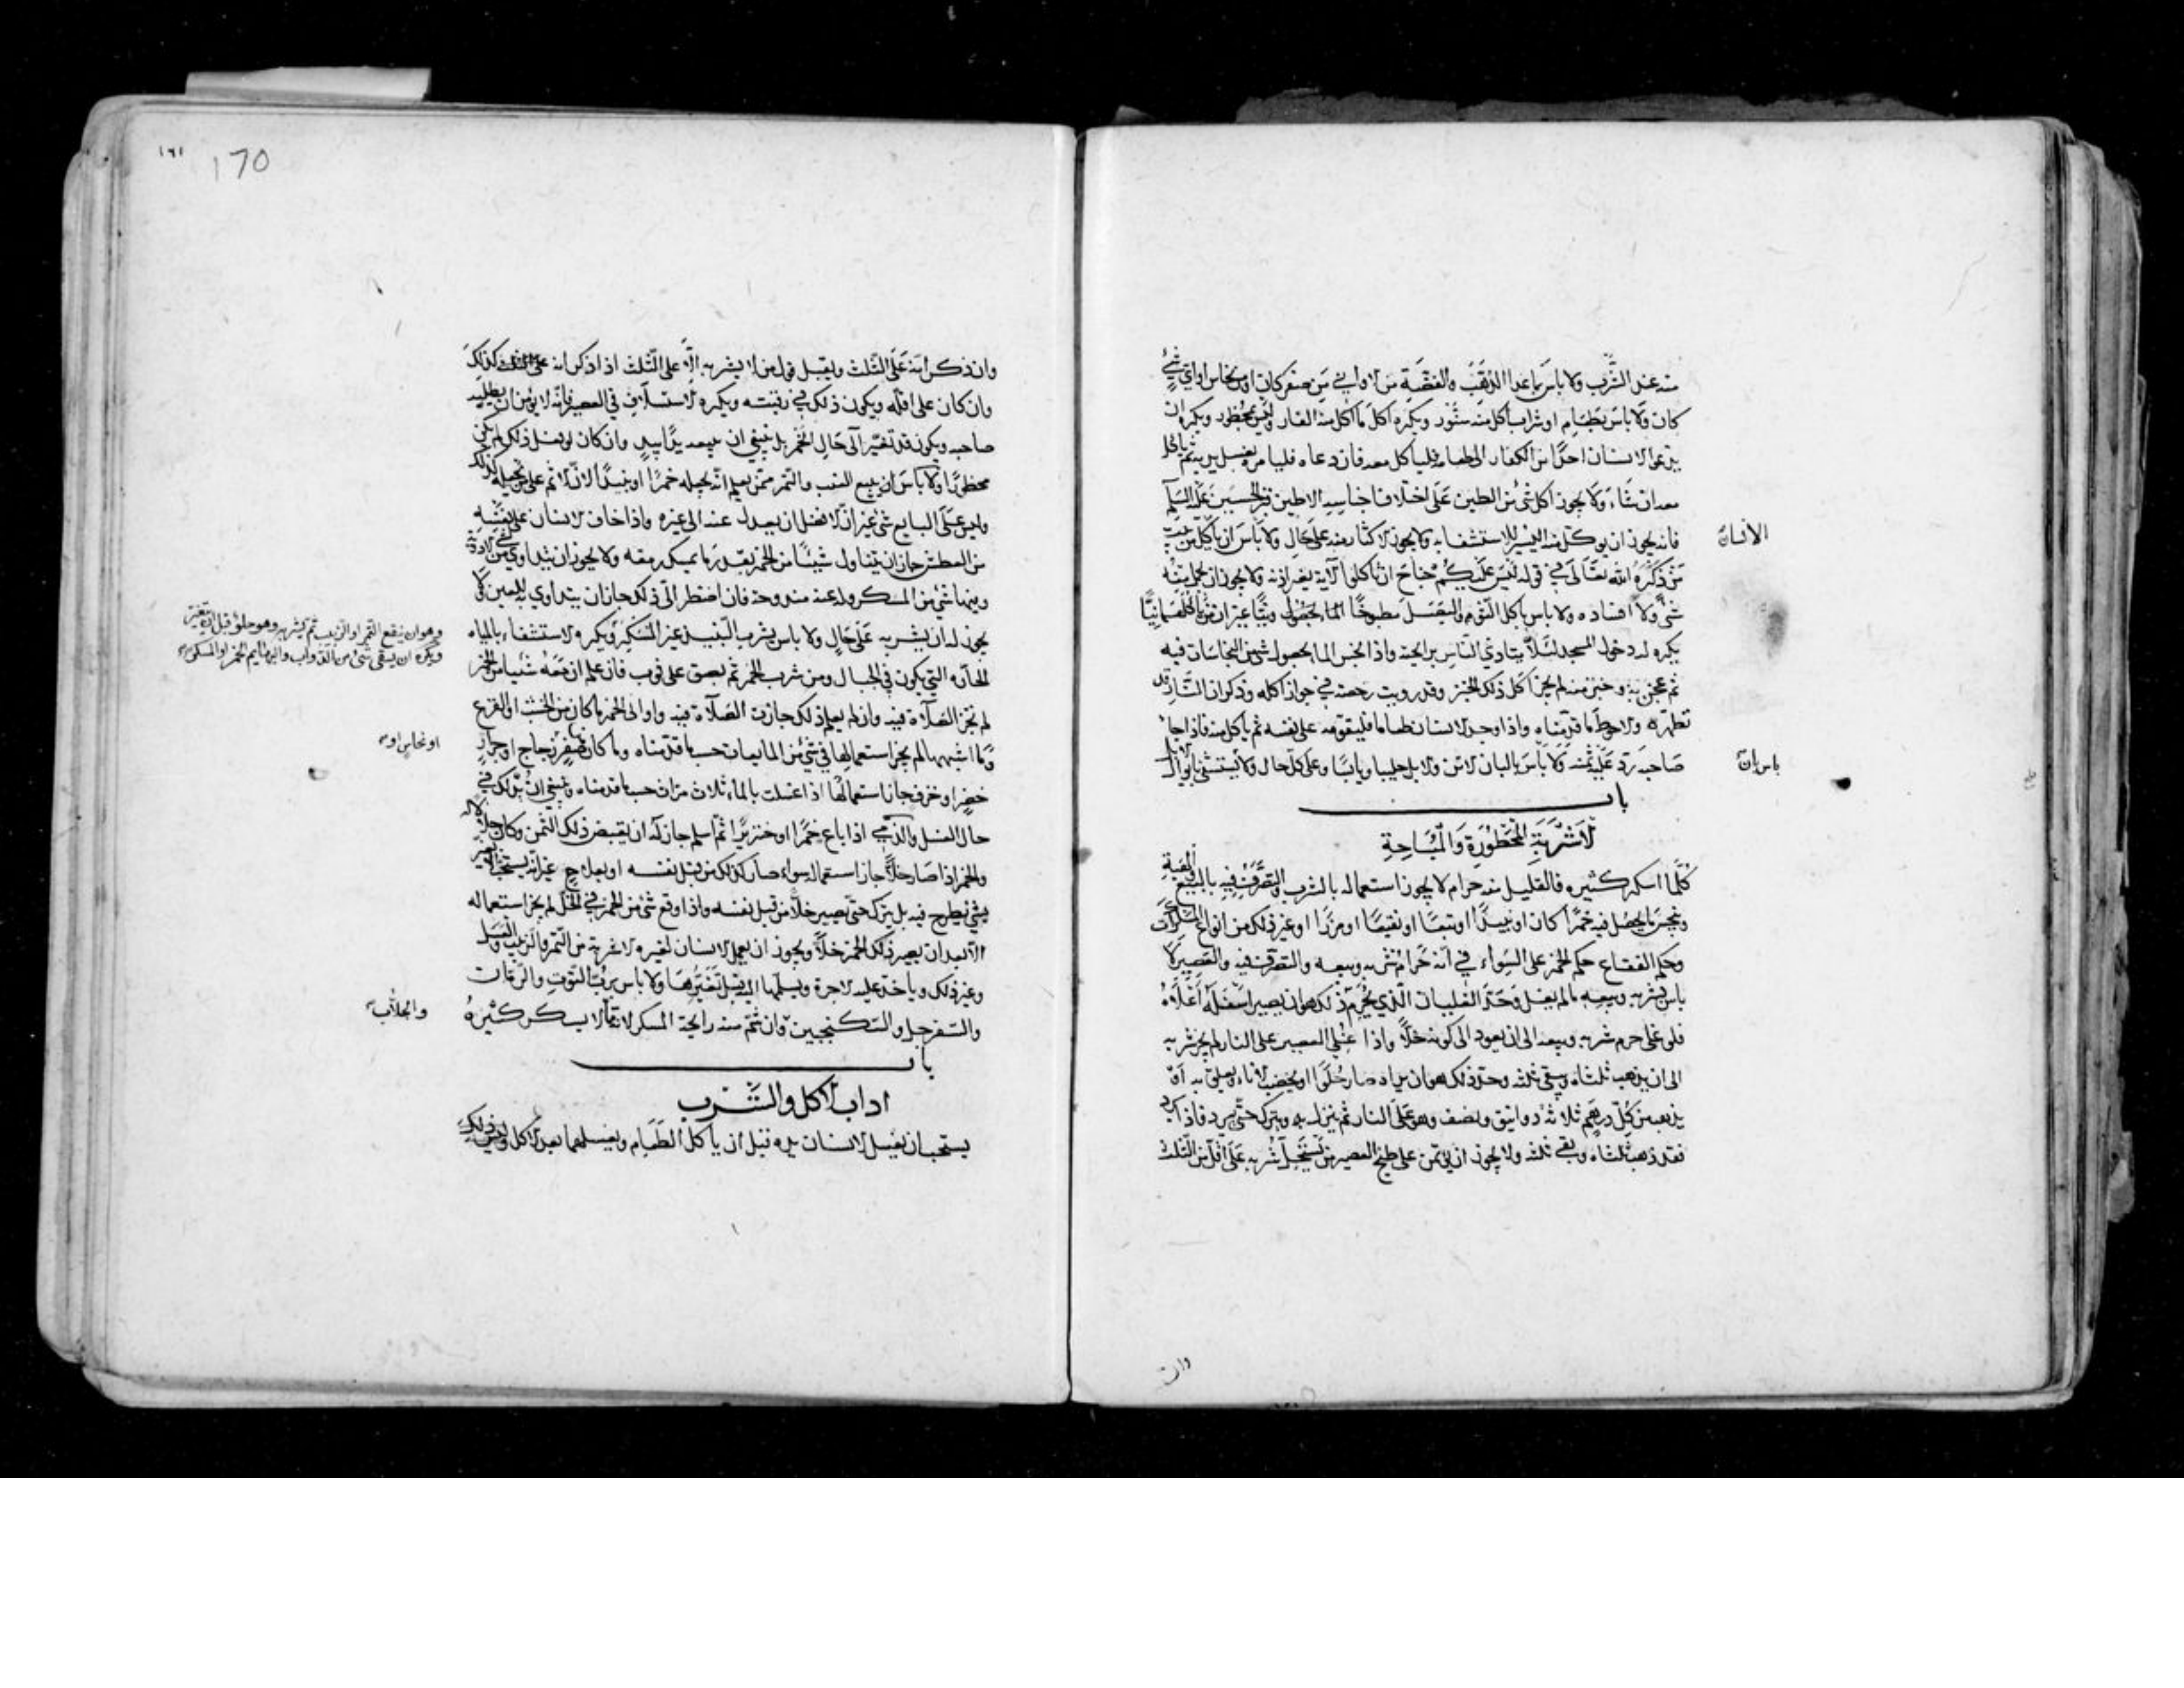 منه عند الشرب ولا باس بما عدا الذهب والفضة من الاواني من صفر كان او من نحاس او اي شئ
كان ولا باس بطعام او شراب اكل منه سنور ويكره اكل ما اكل منه الفار وليس بمحظور ويكره ان
يدعو الانسان احدا من الكفار الى طعامه فلياكل معه فان دعاه فليامره بغسل يديه ثم ياكل
معه ان شاء ولا يجوز اكل شئ من الطين على اختلاف اجناسه الا طين قبر الحسين عليه السلام
فانه يجوز ان يوكل منه اليسير للاستشفاء به ولا يجوز الاكثار منه على حال ولا باس ان ياكل من بيت
الانسان
من ذكره الله تعالى في قوله ليس عليكم جناح ان تاكلوا الآية بغير اذنه ولا يجوز ان يحمل منه
شئ ولا افساده ولا باس باكل الثوم والبصل مطبوخا ونيا غير ان من اكلهما نيا
يكره له دخول المسجد لئلا يتاذي الناس برائحته واذا نجس الماء بحصول شئ من النجاسات فيه
ثم عجن به وخبز منه لم يجز اكل ذلك الخبز وقد رويت رخصة في جواز اكله وذكر ان النار قد
تطهره والاحوط ما قدمناه واذا وجد الانسان طعاما فليقومه على نفسه ثم ياكل منه فاذا جاء
صاحبه رد عليه ثمنه ولا باس بالبان الاتن والابل حليبا ويابسا وعلى كل حال ولا يستشفي بابوال
باس بان
باب
الاشربة المحظورة والمباحة
كلما اسكر كثيره فالقليل منه حرام لا يجوز استعماله بالشرب والتصرف فيه بالبيع والهبة
وينجس ما يحصل فيه خمرا كان او نبيذا او بتعا او نقيعا او مزرا او غير ذلك من انواع المسكرات
وحكم الفقاع حكم الخمر على السواء في انه حرام شربه وبيعه والتصرف فيه والعصير لا
باس بشربه وبيعه ما لم يغل وحد الغليان الذي يحرم ذلك هو ان يصير اسفله اعلاه
فلو غلى حرم شربه وبيعه الى ان يعود الى كونه خلا واذا غلي العصير على النار لم يجز شربه
الى ان يذهب ثلثاه ويبقى ثلثه وحد ذلك هو ان يراه صار حلوا او يخضب الاناء ويعلق به او
يذهب من كل درهم ثلاثة دوانيق ونصف وهو على النار ثم ينزل به ويترك حتى يبرد فاذا برد
فقد ذهب ثلثاه وبقي ثلثه ولا يجوز ان يؤتمن على طبخ العصير من يستحل شربه على اقل من الثلث
وان
١٦١
170
وان ذكر انه على الثلث ويقبل قول من لا يشربه الا على الثلث اذا ذكر انه على الثلث كذلك
وان كان على اقله ويكون ذلك في رقبته ويكره الاستسلاف في العصير فانه لا يؤمن ان يطلبه
صاحبه ويكون قد تغير الى حال الخمر بل ينبغي ان يبيعه يدا بيد وان كان لو فعل ذلك لم يكن
محظورا ولا باس ان يبيع العنب والتمر ممن يعلم انه يجعله خمرا او نبيذا لان الاثم على من يجعله كذلك
وليس على البايع شئ غير ان الافضل ان يعدل عنه الى غيره واذا خاف الانسان على نفسه
من العطش جاز ان يتناول شيئا من الخمر بقدر ما يمسك رمقه ولا يجوز ان يتداوي بشئ من الادوية
وفيها شئ من المسكر وله عنه مندوحة فان اضطر الى ذلك جاز ان يتداوي به للعين ولا
يجوز له ان يشربه على حال ولا باس بشرب النبيذ غير المسكر ويكره الاستشفاء بالمياه
وهو ان ينقع التمر او الزبيب ثم يشربه وهو حلو قبل ان يتغير
ويكره ان يسقى شئ من الدواب والبهايم الخمر او المسكر
الحارة التي يكون في الجبال ومن شرب الخمر ثم بصق على ثوب فان علم ان معه شيئا من الخمر
لم تجز الصلاة فيه وان لم يعلم ذلك جازت الصلاة فيه واواني الخمر ما كان من الخشب او القرع
وما اشبههما لم يجز استعمالها في شئ من المايعات حسبما قدمناه وما كان من صفر او زجاج او جرار
او نحاس او
خضر او خزف جاز استعمالها اذا غسلت بالماء ثلاث مرات حسبما قدمناه وينبغي ان يدلك في
حال الغسل والذمي اذا باع خمرا او خنزيرا ثم اسلم جاز له ان يقبض ذلك الثمن وكان حلالا له
والخمر اذا صار خلا جاز استعماله سواء صار كذلك من قبل نفسه او بعلاج غير انه يستحب الا يغير
بشئ يطرح فيه بل يترك حتى يصير خلا من قبل نفسه واذا وقع شئ من الخمر في الخل لم يجز استعماله
الا بعد ان يصير ذلك الخمر خلا ويجوز ان يعمل الانسان لغيره الاشربة من التمر والزبيب والعسل
وغير ذلك وياخذ عليه الاجرة ويسلمها اليه قبل تغيرها ولا باس برب التوت والرمان
والسفرجل والسكنجبين وان شم منه رايحة المسكر لانها لا يسكر كثيره
والجلاب
باب
اداب الاكل والشرب
يستحب ان يغسل الانسان يده قبل ان ياكل الطعام ويغسلهما بعد الاكل وليس ذلك